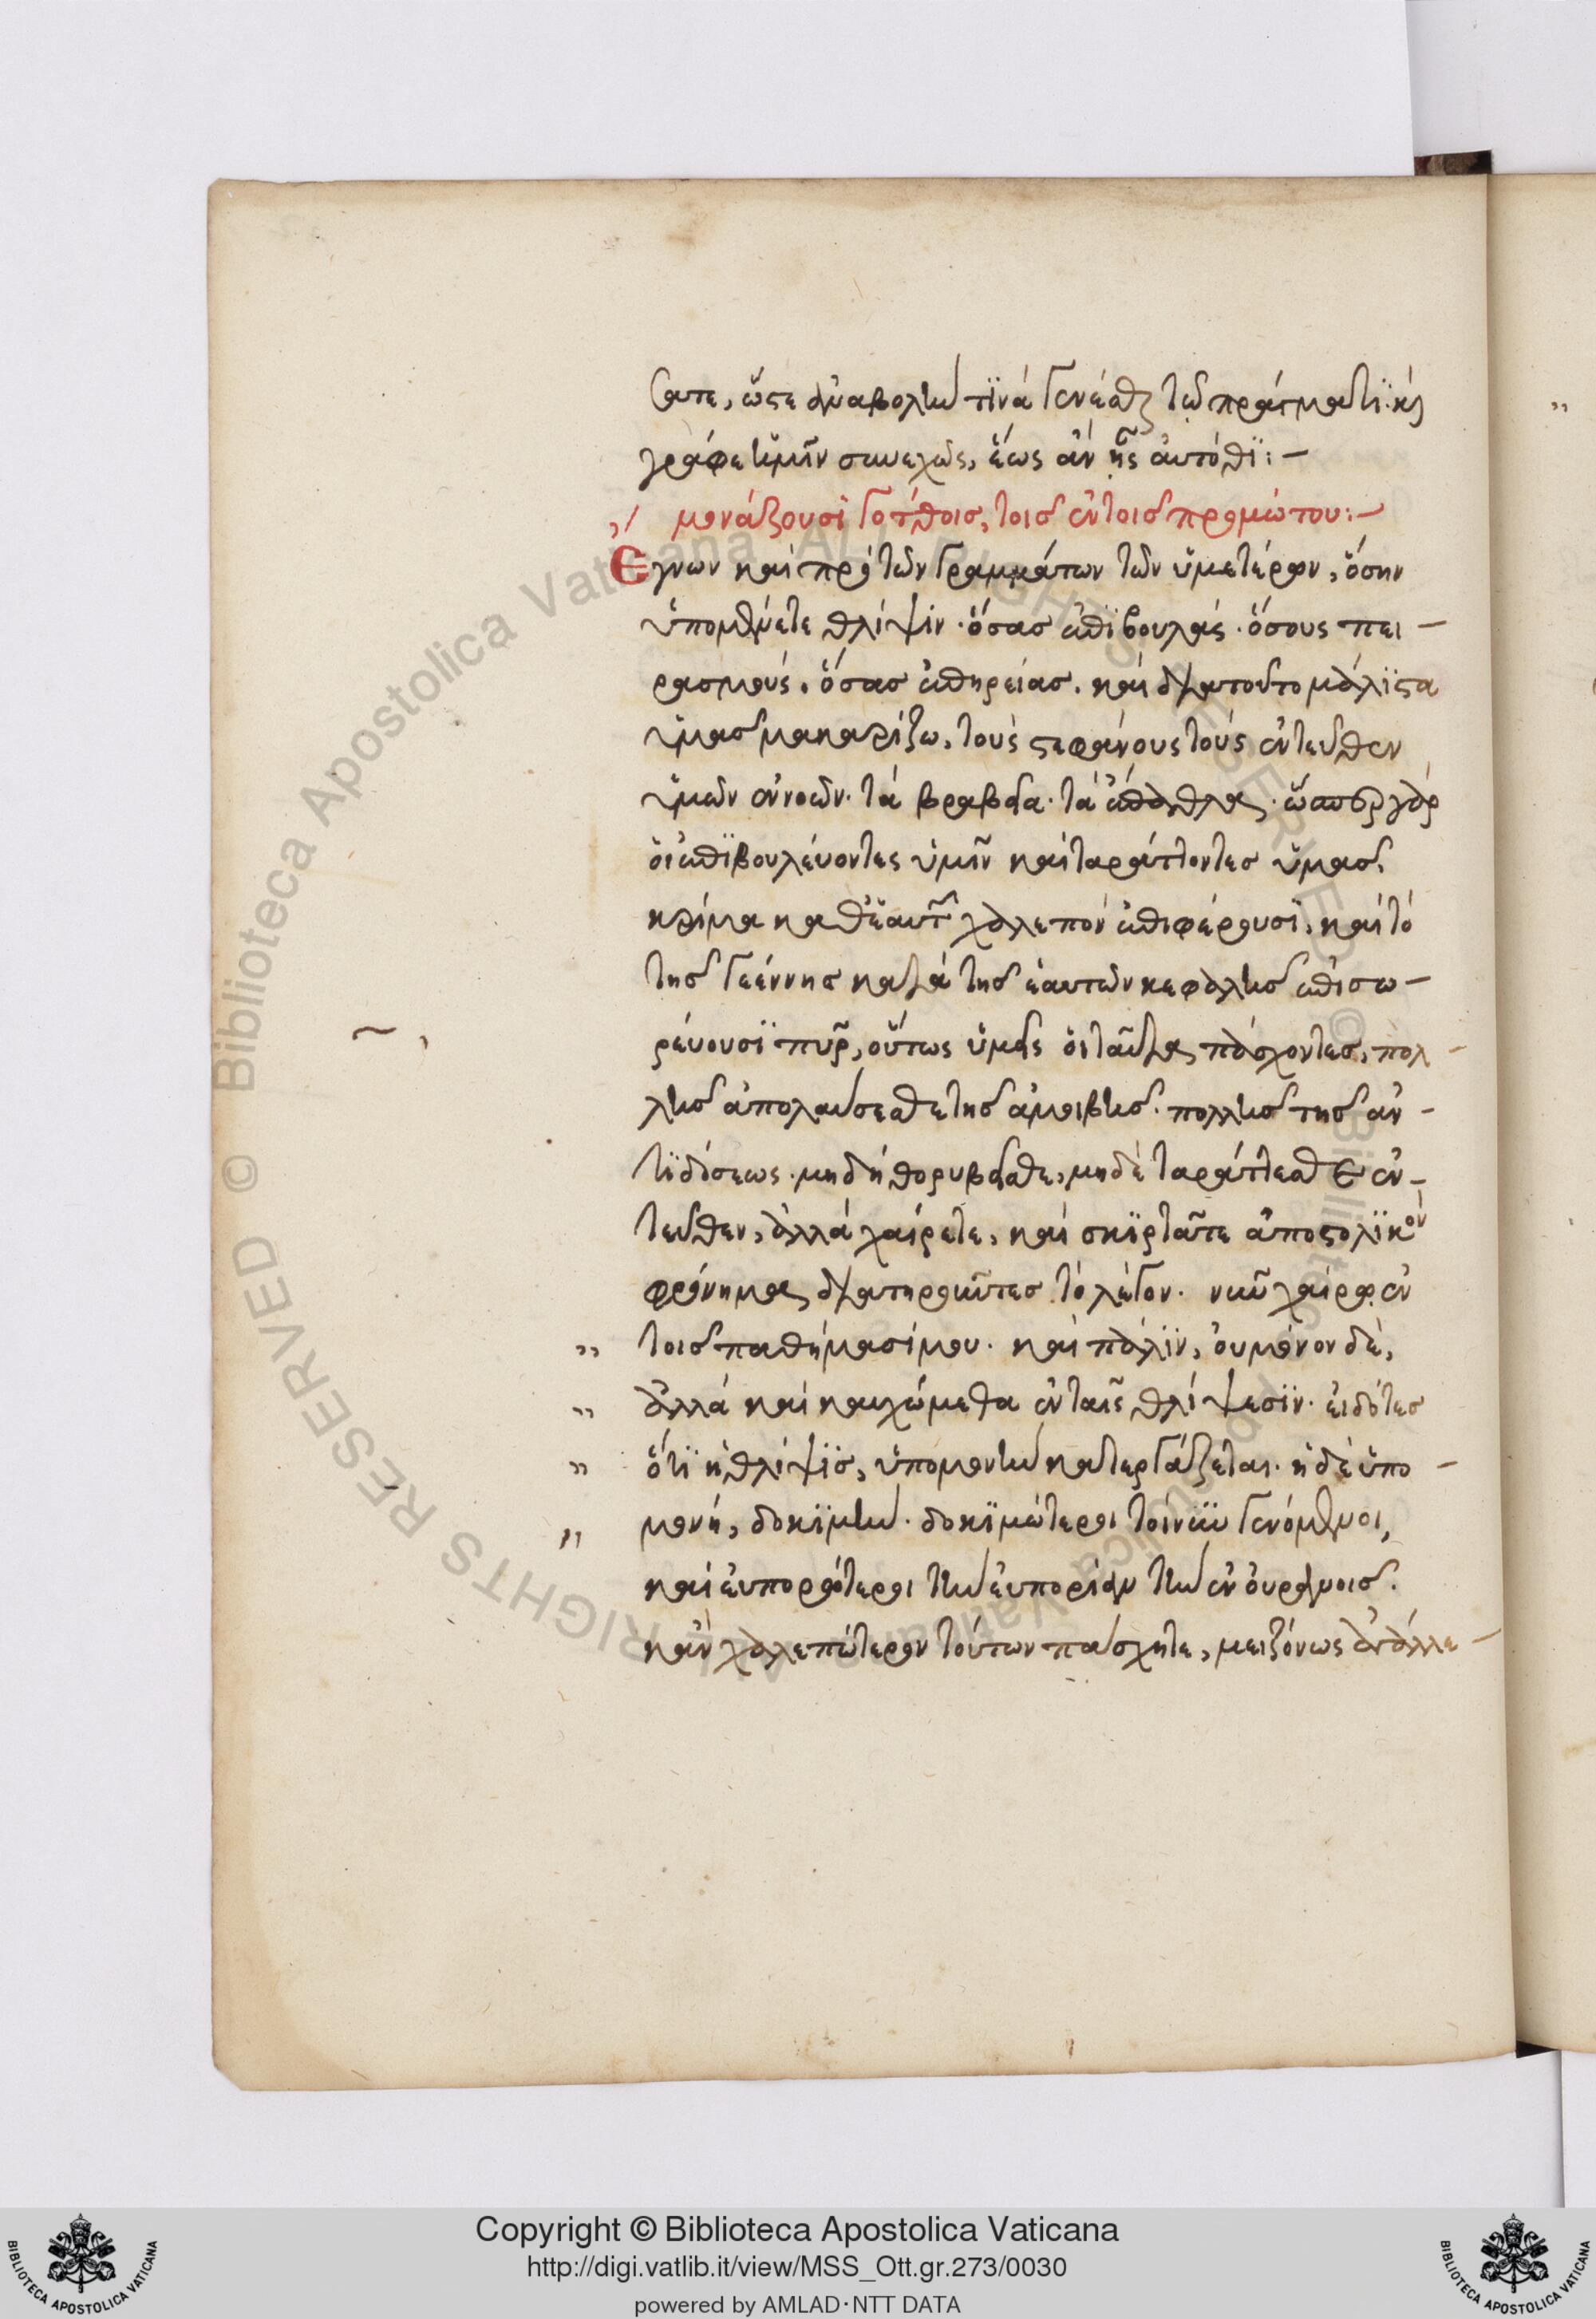 σατε, ὥστε ἀναβολήν τινά γενέσθαι τῷ πράγματι· καὶ
γράφε ἡμῖν συνεχῶς, ἕως ἂν ᾖς αὐτόθι:—
μονάζουσι Γότθοις, τοῖς ἐν τοῖς προμώτου:—
Ἔγνων καὶ πρὸ τῶν γραμμάτων τῶν ὑμετέρων, ὅσην
ὑπομένετε θλίψιν· ὅσας ἐπιβουλάς· ὅσους πει-
ρασμούς· ὅσας ἐπηρείας· καὶ διὰ τοῦτο μάλιστα
ὑμᾶς μακαρίζω, τοὺς στεφάνους τοὺς ἐντεῦθεν
ὑμῶν ἐννοῶν· τὰ βραβεῖα· τὰ ἔπαθλα· ὥσπερ γὰρ
οἱ ἐπιβουλεύοντες ὑμῖν καὶ ταράττοντες ὑμᾶς,
κρίμα καθ' ἑαυτῶν χαλεπὸν ἐπιφέρουσι, καὶ τὸ
τῆς γεέννης κατὰ τῆς ἑαυτῶν κεφαλῆς ἐπισω-
ρεύουσι πῦρ, οὕτως ὑμεῖς οἱ ταῦτα πάσχοντες, πολ-
λῆς ἀπολαύσεσθε τῆς ἀμοιβῆς· πολλῆς τῆς ἀν-
τιδόσεως· μὴ δὴ θορυβεῖσθε, μηδὲ ταράττεσθε ἐν-
τεῦθεν, ἀλλὰ χαίρετε, καὶ σκιρτᾶτε ἀποστολικὸν
φρόνημα διατηροῦντες τὸ λέγον· νῦν χαίρω ἐν
" τοῖς παθήμασί μου· καὶ πάλιν, οὐ μόνον δὲ,
" ἀλλὰ καὶ καυχώμεθα ἐν ταῖς θλίψεσιν· εἰδότες
" ὅτι ἡ θλίψις, ὑπομονὴν κατεργάζεται· ἡ δὲ ὑπο-
" μονή, δοκιμήν· δοκιμώτεροι τοίνυν γενόμενοι,
καὶ εὐπορώτεροι τὴν εὐπορίαν τὴν ἐν οὐρανοῖς·
κἂν χαλεπώτερον τούτων πάσχητε, μειζόνως ἀγάλλε-
Copyright © Biblioteca Apostolica Vaticana
http://digi.vatlib.it/view/MSS_Ott.gr.273/0030
powered by AMLAD·NTT DATA